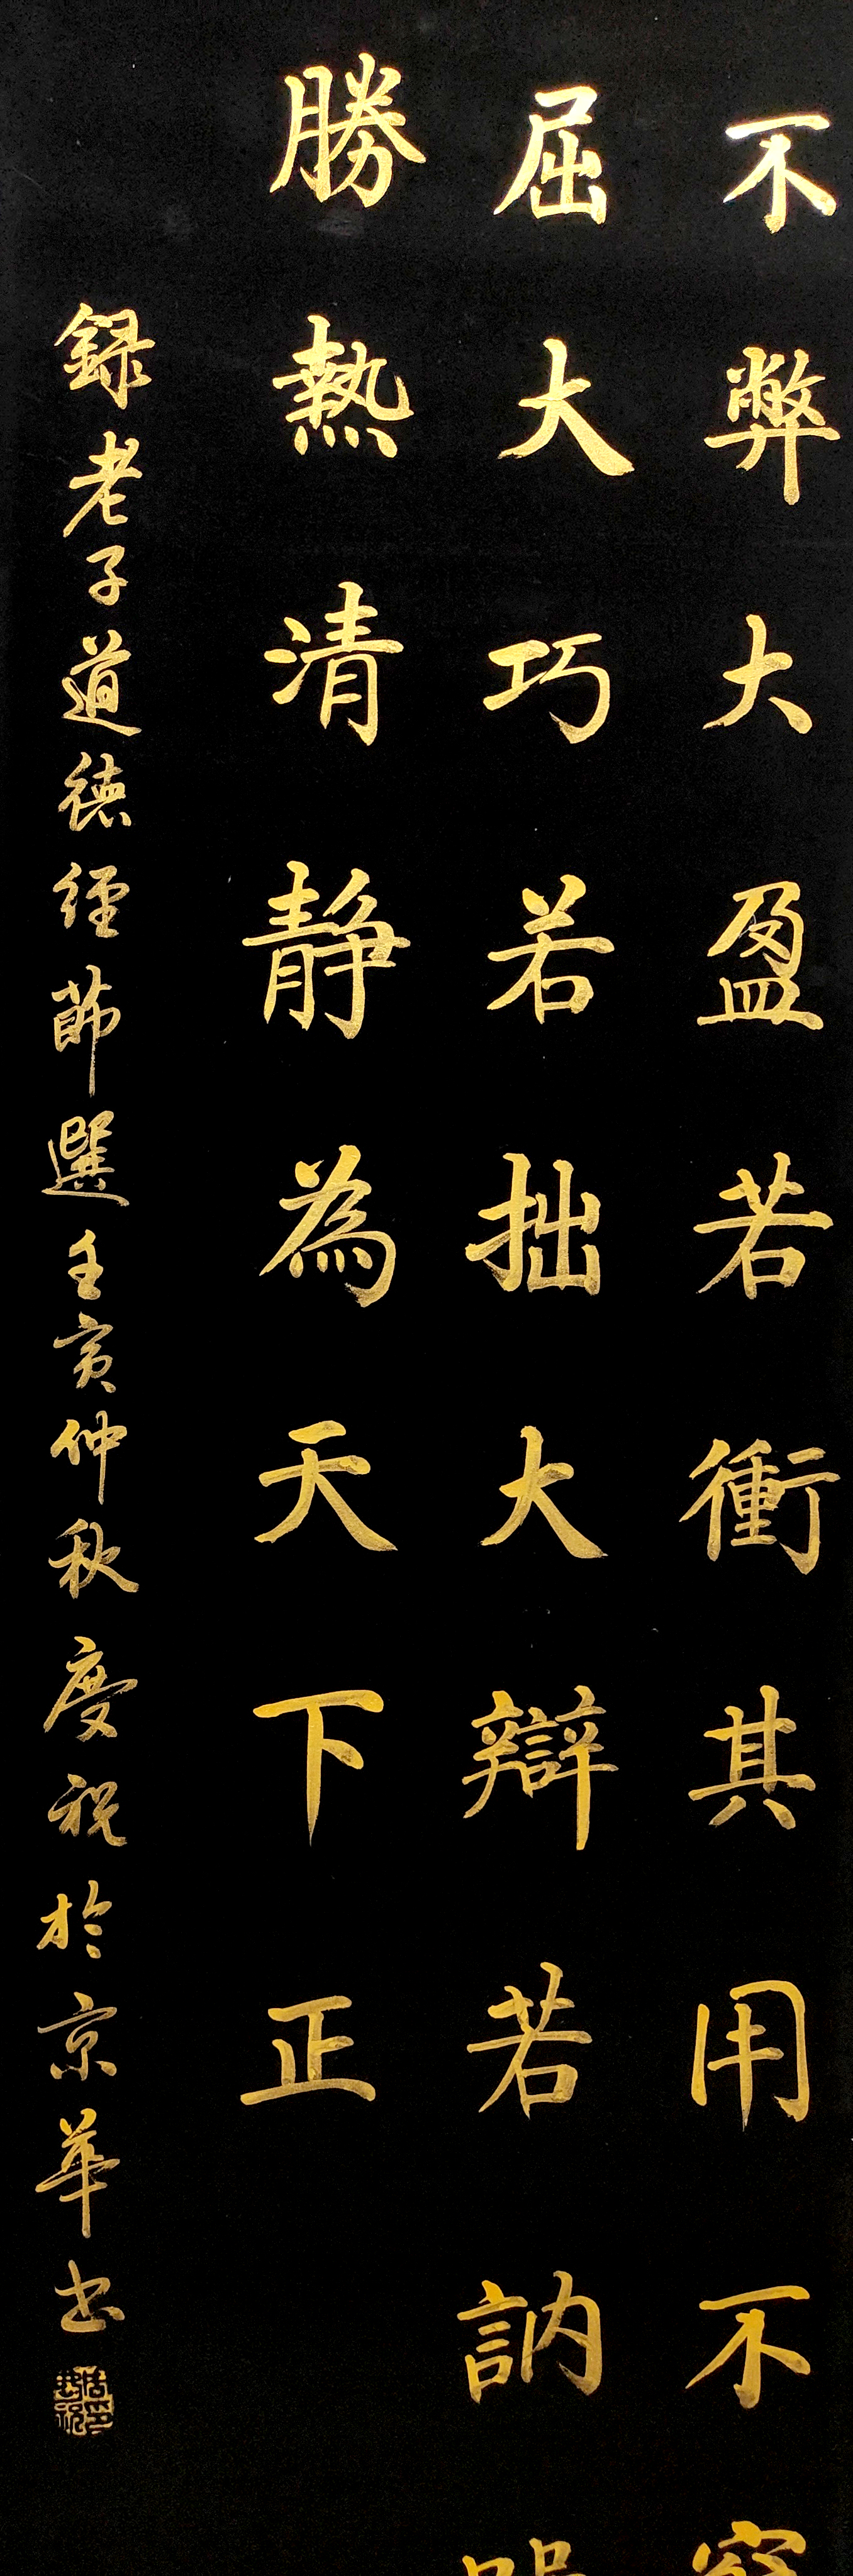 不弊大盈若衝其用不
屈大巧若拙大辯若訥
勝熱清静為天下正
録老子道德經節選壬寅仲秋慶祝於京華书